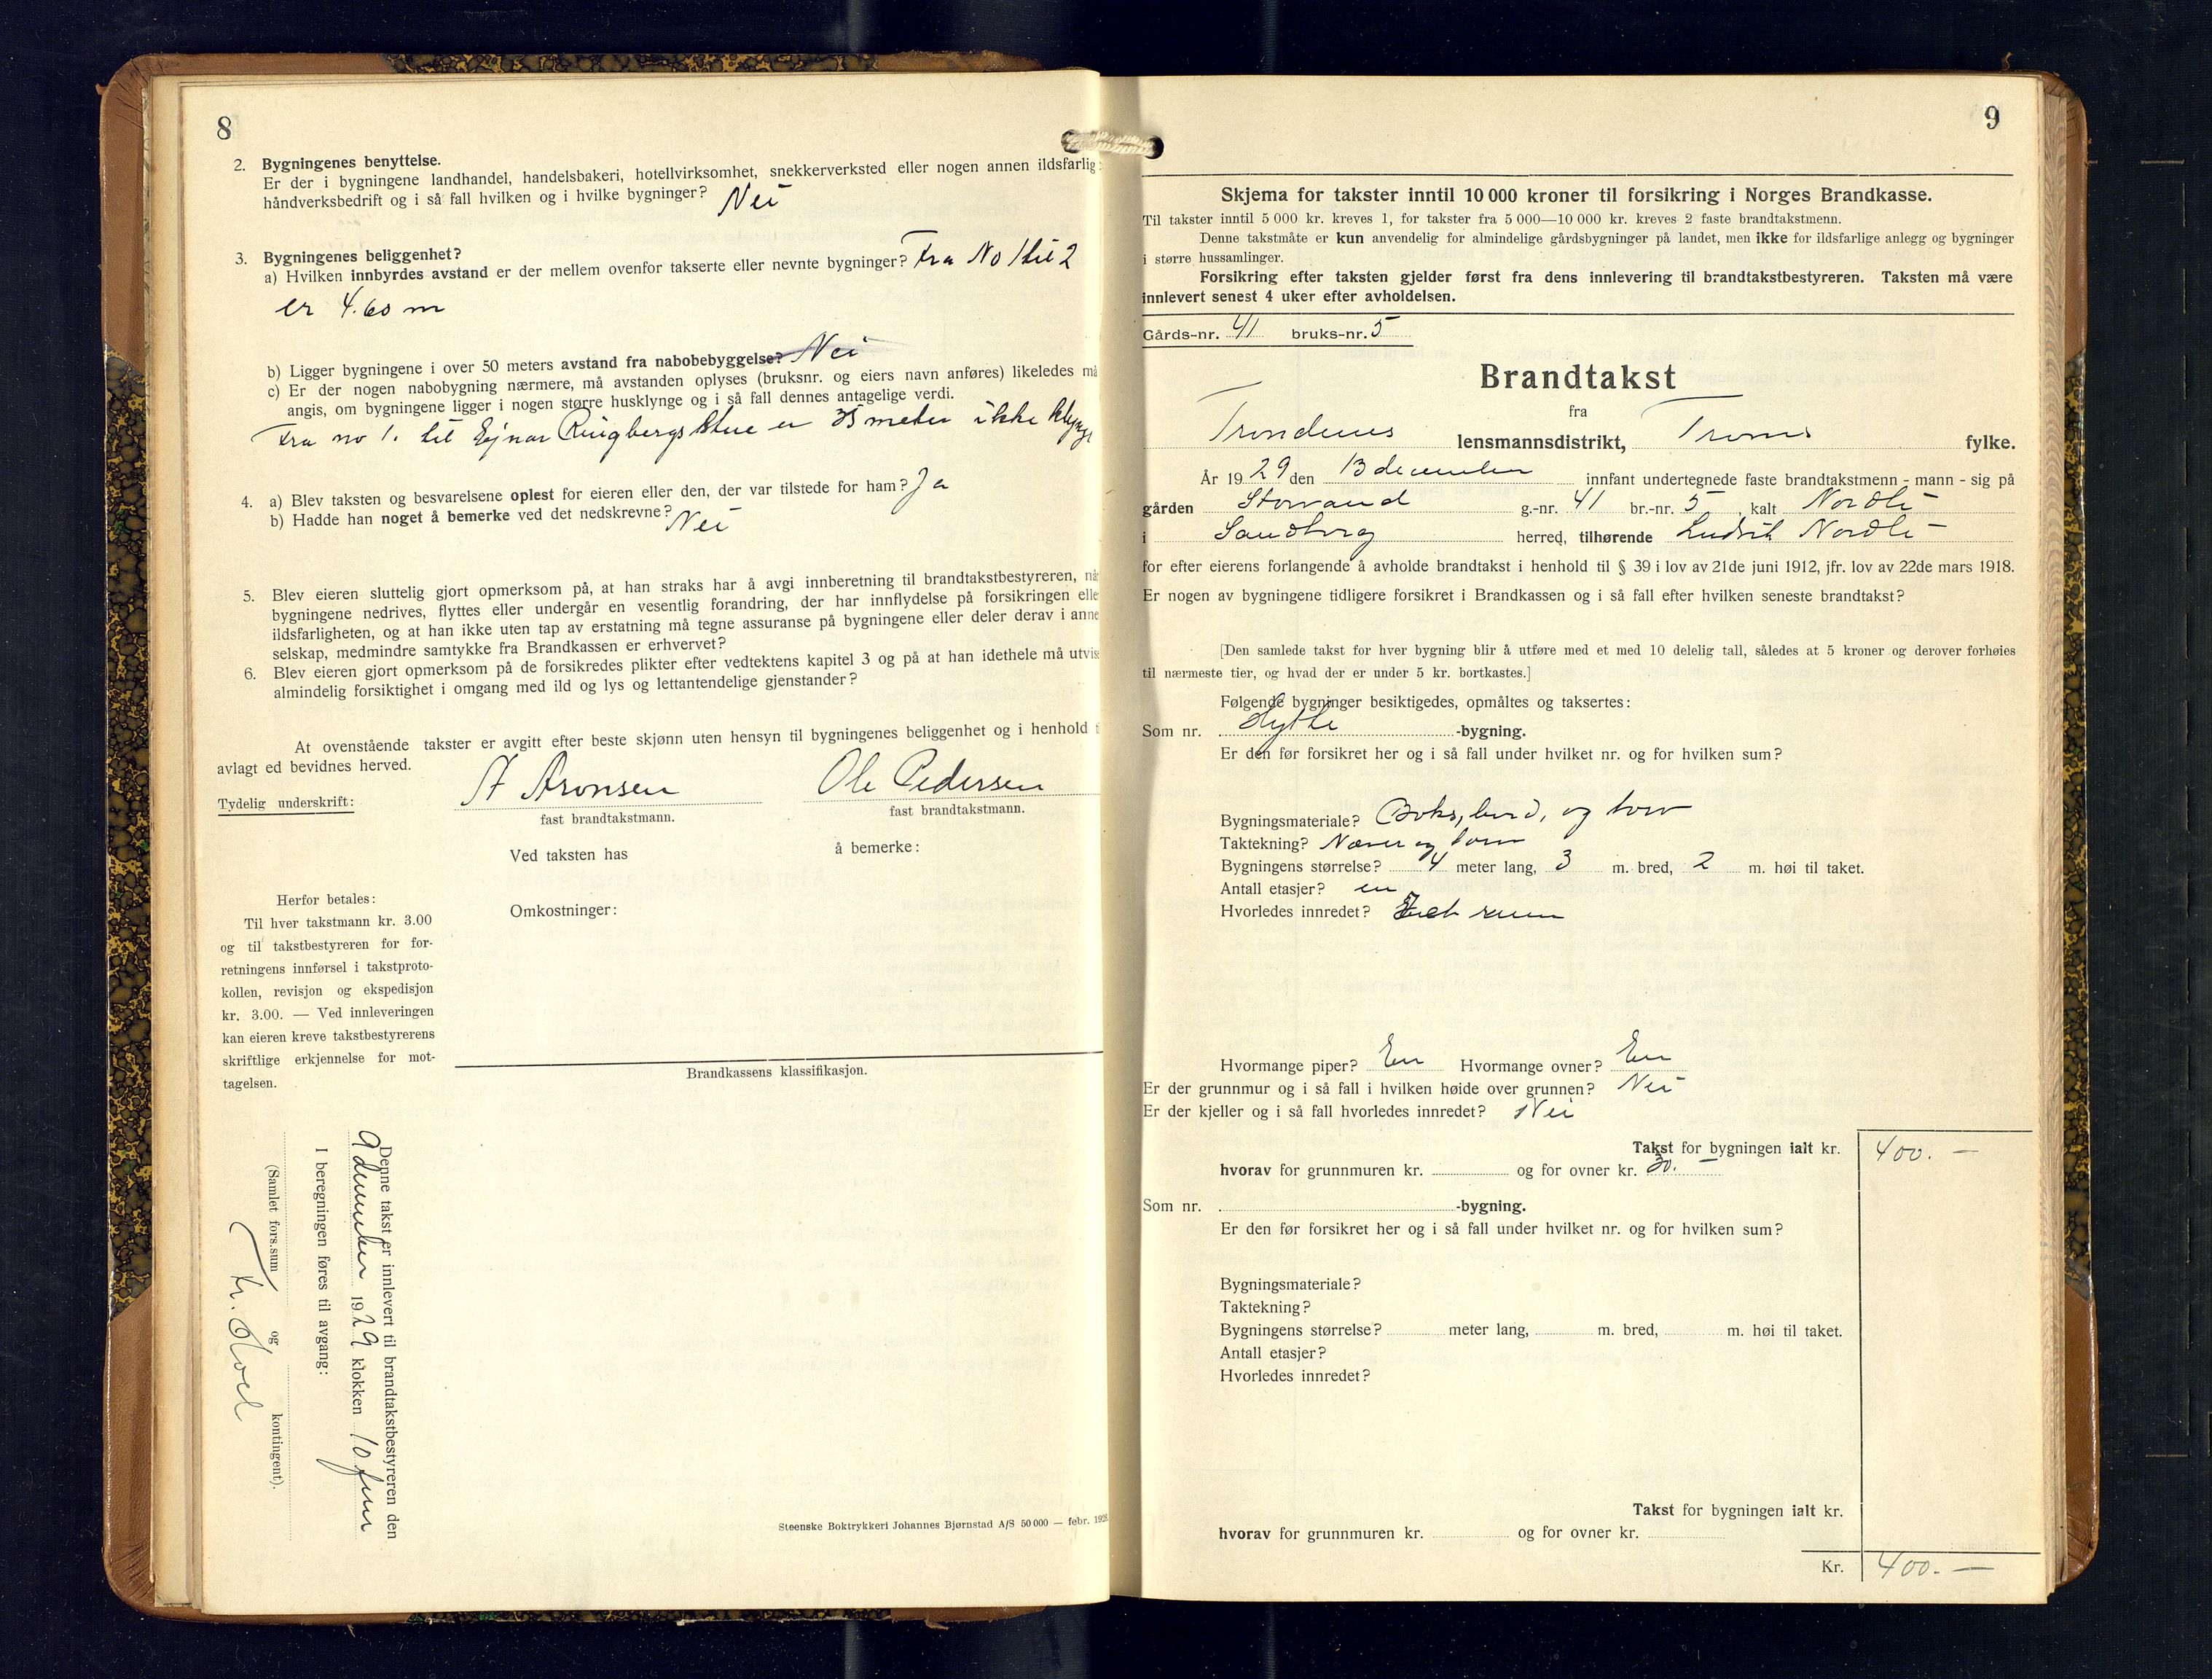 8
2. Bygningenes benyttelse.
Er der i bygningene landhandel, handelsbakeri, hotellvirksomhet, snekkerverksted eller nogen annen ildsfarlig
håndverksbedrift og i så fall hvilken og i hvilke bygninger? Nei
3. Bygningenes beliggenhet?
a) Hvilken innbyrdes avstand er der mellem ovenfor takserte eller nevnte bygninger? Fra No 1 til 2
er 4.60 m
b) Ligger bygningene i over 50 meters avstand fra nabobebyggelse? Nei
c) Er der nogen nabobygning nærmere, må avstanden oplyses (bruksnr. og eiers navn anføres) likeledes må
angis, om bygningene ligger i nogen større husklynge og i så fall dennes antagelige verdi.
Fra no 1. til Ejnar Ringbergs stue er 35 meter ikke klynge
4. a) Blev taksten og besvarelsene oplest for eieren eller den, der var tilstede for ham? Ja
b) Hadde han noget å bemerke ved det nedskrevne? Nei
5. Blev eieren sluttelig gjort opmerksom på, at han straks har å avgi innberetning til brandtakstbestyreren, når
bygningene nedrives, flyttes eller undergår en vesentlig forandring, der har innflydelse på forsikringen elle
ildsfarligheten, og at han ikke uten tap av erstatning må tegne assuranse på bygningene eller deler derav i anne
selskap, medmindre samtykke fra Brandkassen er erhvervet?
6. Blev eieren gjort opmerksom på de forsikredes plikter efter vedtektens kapitel 3 og på at han idethele må utvis
almindelig forsiktighet i omgang med ild og lys og lettantendelige gjenstander?
At ovenstående takster er avgitt efter beste skjønn uten hensyn til bygningenes beliggenhet og i henhold t
avlagt ed bevidnes herved.
Tydelig underskrift: A Aronsen Ole Pedersen
fast brandtakstmann. fast brandtakstmann.
Ved taksten has å bemerke:
Omkostninger:
Herfor betales:
Til hver takstmann kr. 3.00
og til takstbestyreren for for-
retningens innførsel i takstproto-
kollen, revisjon og ekspedisjon
kr. 3.00. — Ved innleveringen
kan eieren kreve takstbestyrerens
skriftlige erkjennelse for mot-
tagelsen.
Brandkassens klassifikasjon.
Denne takst er innlevert til brandtakstbestyreren den
9 december 1929 klokken 10 fm
I beregningen føres til avgang:
(Samlet fors.sum og kontingent).
Hoel
Steenske Boktrykkeri Johannes Bjørnstad A/S 50 000 — febr. 1928
9
Skjema for takster inntil 10 000 kroner til forsikring i Norges Brandkasse.
Til takster inntil 5 000 kr. kreves 1, for takster fra 5 000—10 000 kr. kreves 2 faste brandtakstmenn.
Denne takstmåte er kun anvendelig for almindelige gårdsbygninger på landet, men ikke for ildsfarlige anlegg og bygninger
i større hussamlinger.
Forsikring efter taksten gjelder først fra dens innlevering til brandtakstbestyreren. Taksten må være
innlevert senest 4 uker efter avholdelsen.
Gårds-nr. 41 bruks-nr. 5
Brandtakst
fra
Trondenes lensmannsdistrikt, Troms fylke.
År 1929 den 13 december innfant undertegnede faste brandtakstmenn - mann - sig på
gården Storvand g.-nr. 41 br.-nr. 5, kalt Nordli
i Sandtorg herred, tilhørende Ludvik Nordli
for efter eierens forlangende å avholde brandtakst i henhold til § 39 i lov av 21de juni 1912, jfr. lov av 22de mars 1918.
Er nogen av bygningene tidligere forsikret i Brandkassen og i så fall efter hvilken seneste brandtakst?
[Den samlede takst for hver bygning blir å utføre med et med 10 delelig tall, således at 5 kroner og derover forhøies
til nærmeste tier, og hvad der er under 5 kr. bortkastes.]
Følgende bygninger besiktigedes, opmåltes og taksertes:
Som nr. Hytte -bygning.
Er den før forsikret her og i så fall under hvilket nr. og for hvilken sum?
Bygningsmateriale? Boks, bord, og torv
Taktekning? Næver og torv
Bygningens størrelse? 4 meter lang, 3 m. bred, 2 m. høi til taket.
Antall etasjer? en
Hvorledes innredet? Et rum
Hvormange piper? En Hvormange ovner? En
Er der grunnmur og i så fall i hvilken høide over grunnen? Nei
Er der kjeller og i så fall hvorledes innredet? Nei
Takst for bygningen ialt kr. 400. —
hvorav for grunnmuren kr. og for ovner kr. 30. —
Som nr. -bygning.
Er den før forsikret her og i så fall under hvilket nr. og for hvilken sum?
Bygningsmateriale?
Taktekning?
Bygningens størrelse? meter lang, m. bred, m. høi til taket.
Antall etasjer?
Hvorledes innredet?
Takst for bygningen ialt kr.
hvorav for grunnmuren kr. og for ovner kr.
Kr. 400. —